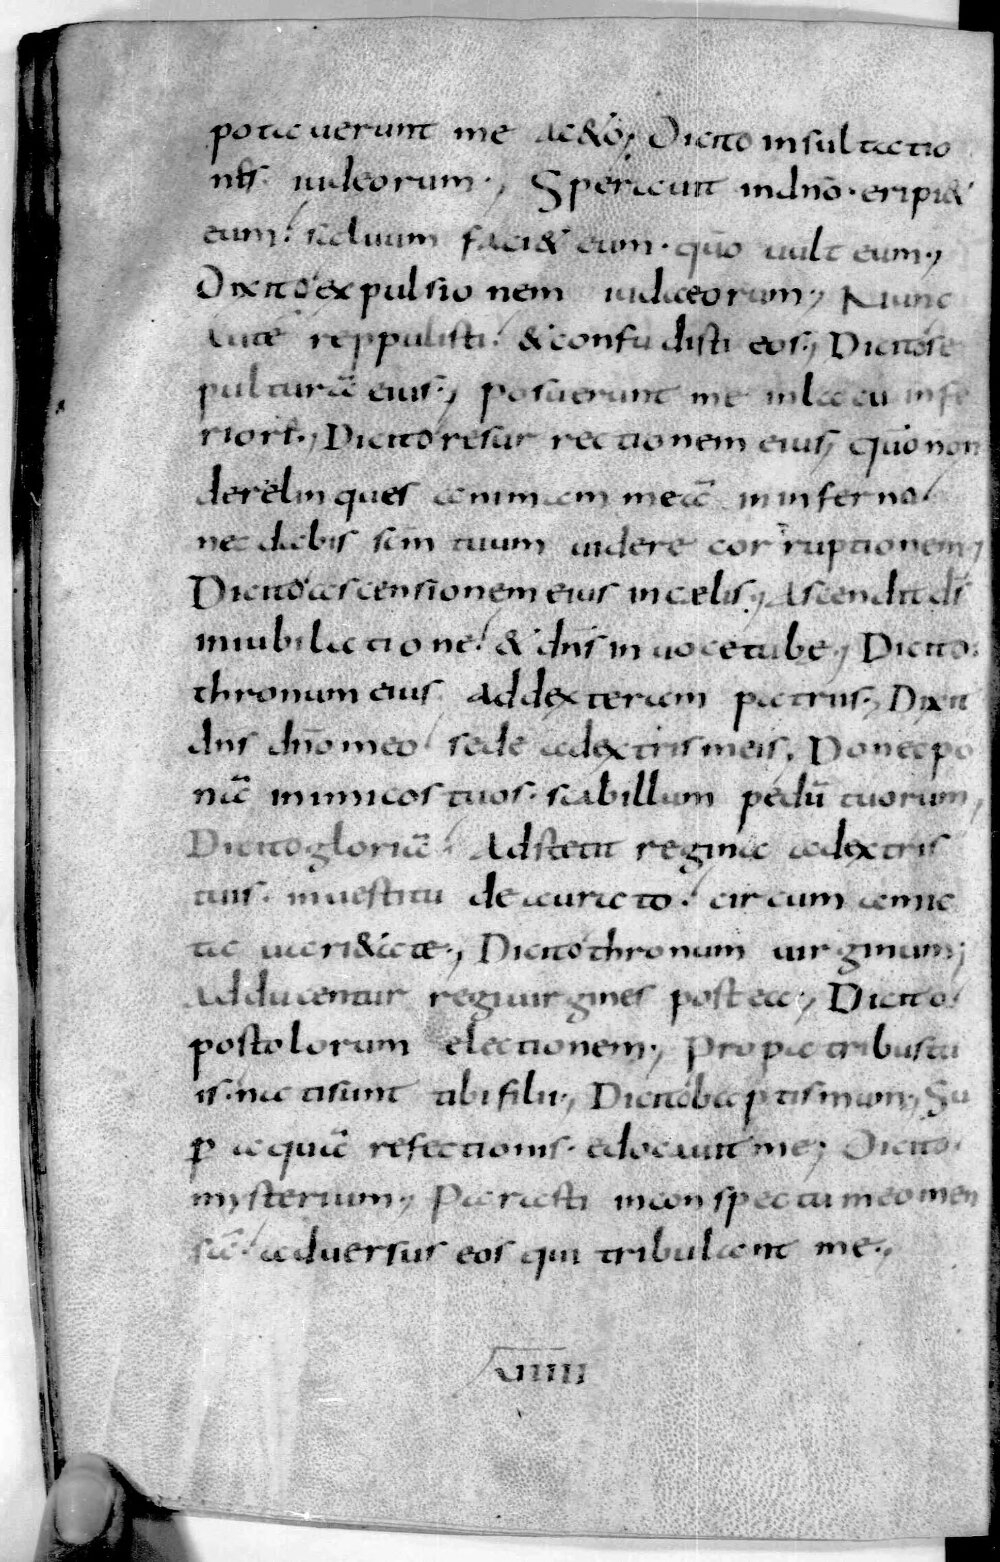 potauerunt me ac&o; Dicito insultatio
nes iudeorum; Sperauit indño· eripi&
eum! saluum faci& eum· qūo uult eum;
Dixito expulsionem iudaeorum; Nunc
aute reppulisti! & confudisti eos; Dicito se
pulturā eius; posuerunt me inlacu infe
riori; Dicito resurrectionem eius; qūo non
derelinques animam meā in inferno!
nec dabis sc̄m tuum uidere corruptionem;
Dicito ascensionem eius in cælis; Ascendit ds̄
in iubilatione! & dn̄s in uoce tube; Dicito
thronum eius ad dexteram patris; Dixit
dn̄s dño meo! sede ad extris meis; Donec po
nā inimicos tuos· scabillum pedū tuorum;
Dicito gloriā! Adstetit regina a dextris
tuis· in uestitu deaurato! circum amic
ta uari&ate; Dicito thronum uirginum;
Adducentur regi uirgines postea; Dicito
postolorum electionem; Pro patribus tu
is· nati sunt tibi filii; Dicito baptismum; Su
p̱ aquā refectionis· edocauit me; Dicito
mysterium; Parasti in conspectu meo men
sā! aduersus eos qui tribulant me;
XVIIII